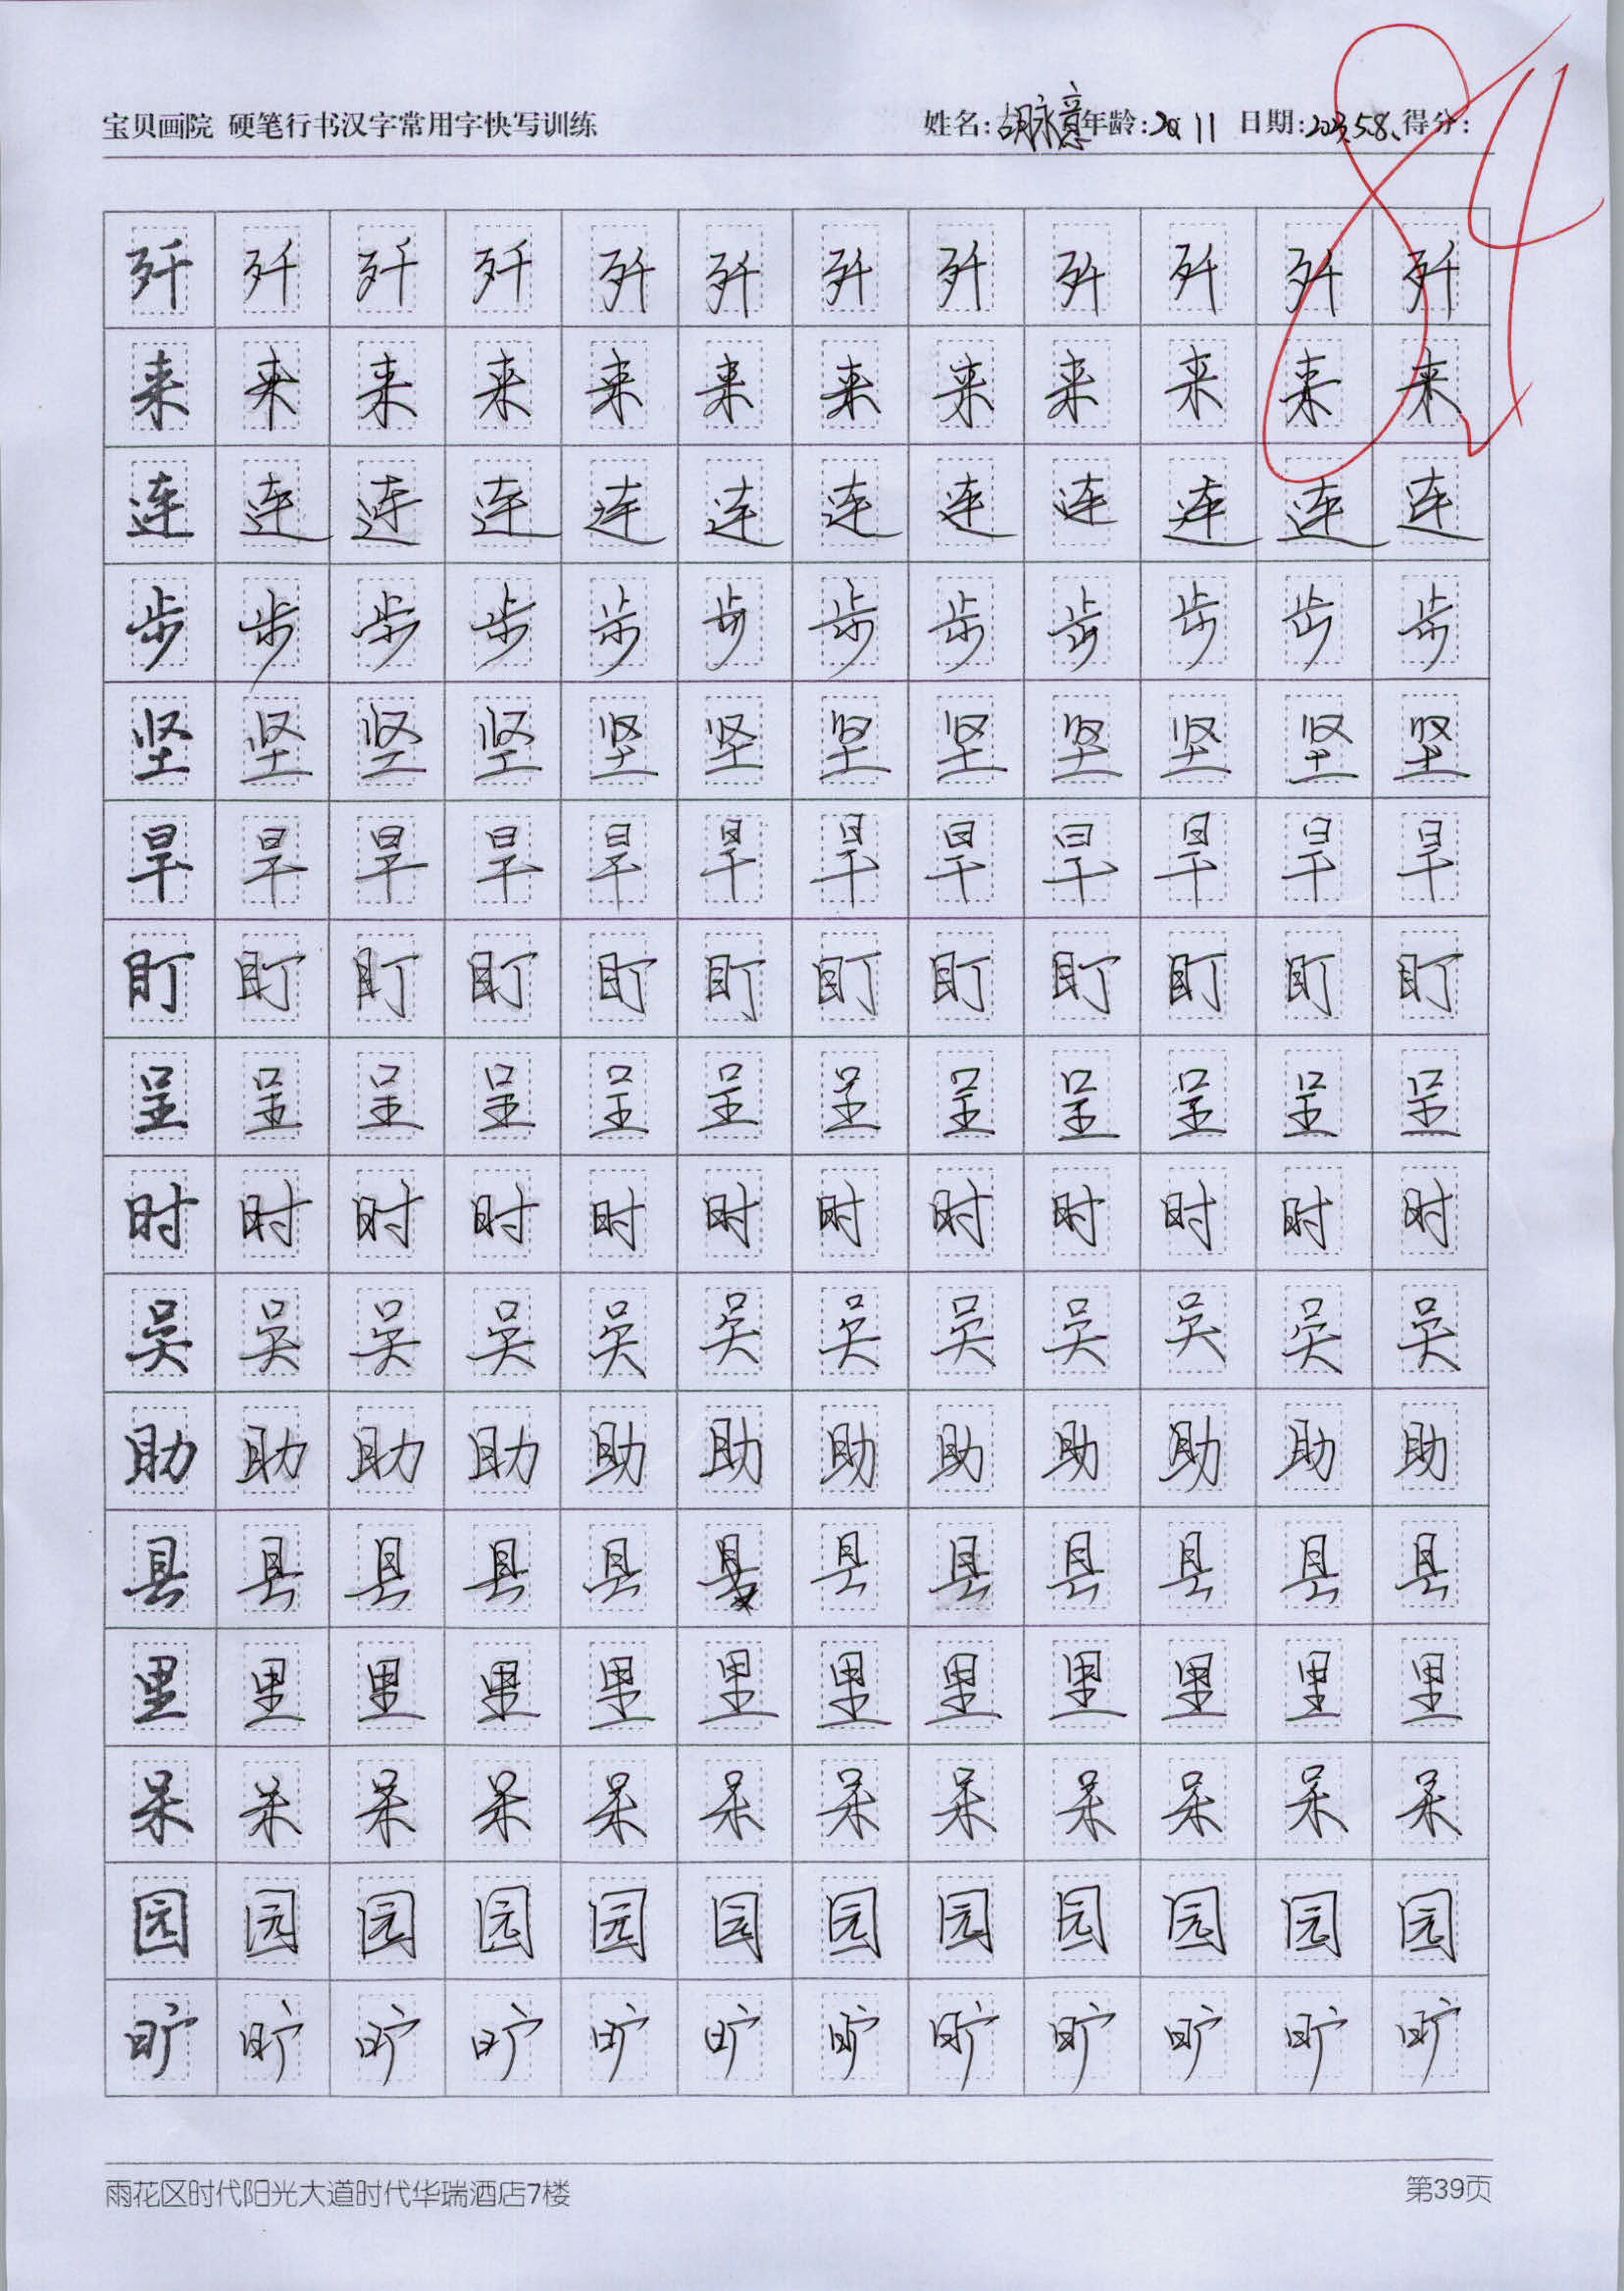 宝贝画院 硬笔行书汉字常用字快写训练
姓名:胡脉意 年龄: 11 日期:2023.5.8. 得分:
84
歼 歼 歼 歼 歼 歼 歼 歼 歼 歼 歼 歼
来 来 来 来 来 来 来 来 来 来 来 来
连 连 连 连 连 连 连 连 连 连 连 连
步 步 步 步 步 步 步 步 步 步 步 步
坚 坚 坚 坚 坚 坚 坚 坚 坚 坚 坚 坚
旱 旱 旱 旱 旱 旱 旱 旱 旱 旱 旱 旱
盯 盯 盯 盯 盯 盯 盯 盯 盯 盯 盯 盯
呈 呈 呈 呈 呈 呈 呈 呈 呈 呈 呈 呈
时 时 时 时 时 时 时 时 时 时 时 时
吴 吴 吴 吴 吴 吴 吴 吴 吴 吴 吴 吴
助 助 助 助 助 助 助 助 助 助 助 助
县 县 县 县 县 县 县 县 县 县 县 县
里 里 里 里 里 里 里 里 里 里 里 里
呆 呆 呆 呆 呆 呆 呆 呆 呆 呆 呆 呆
园 园 园 园 园 园 园 园 园 园 园 园
旷 旷 旷 旷 旷 旷 旷 旷 旷 旷 旷 旷
雨花区时代阳光大道时代华瑞酒店7楼
第39页